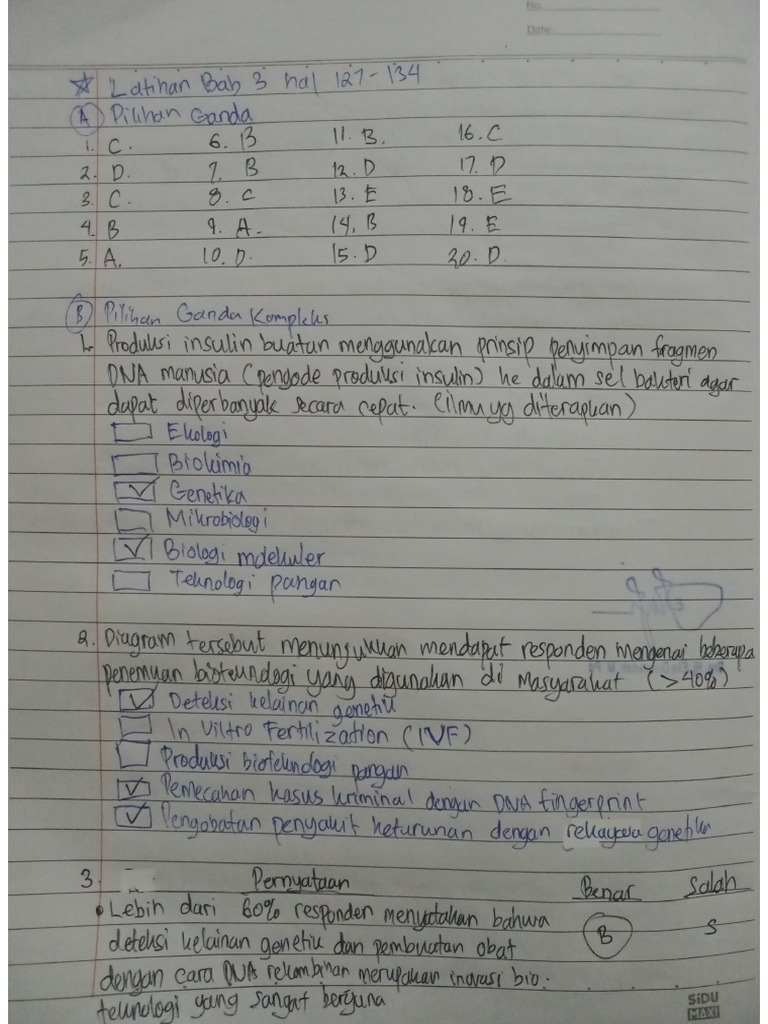 No.
Date:
☆ Latihan Bab 3 hal 127-134
A Pilihan Ganda
1. C. 6. B 11. B. 16. C
2. D. 7. B 12. D 17. D
3. C. 8. C 13. E 18. E
4. B 9. A. 14. B 19. E
5. A. 10. D. 15. D 20. D.
B Pilihan Ganda Kompleks
1. Produksi insulin buatan menggunakan prinsip penyimpan fragmen
DNA manusia (pengode produksi insulin) ke dalam sel bakteri agar
dapat diperbanyak secara cepat. (ilmu yg diterapkan)
☐ Ekologi
☐ Biokimia
☑ Genetika
☐ Mikrobiologi
☑ Biologi molekuler
☐ Teknologi pangan
2. Diagram tersebut menunjukkan mendapat responden mengenai beberapa
penemuan bioteknologi yang digunakan di Masyarakat (>40%)
☑ Deteksi kelainan genetik
☐ In Viltro Fertilization (IVF)
☐ Produksi bioteknologi pangan
☑ Pemecahan kasus kriminal dengan DNA fingerprint
☑ Pengobatan penyakit keturunan dengan rekayasa genetik
3. Pernyataan Benar Salah
• Lebih dari 60% responden menyatakan bahwa B S
deteksi kelainan genetik dan pembuatan obat
dengan cara DNA rekombinan merupakan inovasi bio-
teknologi yang sangat berguna
SiDU
MAXI